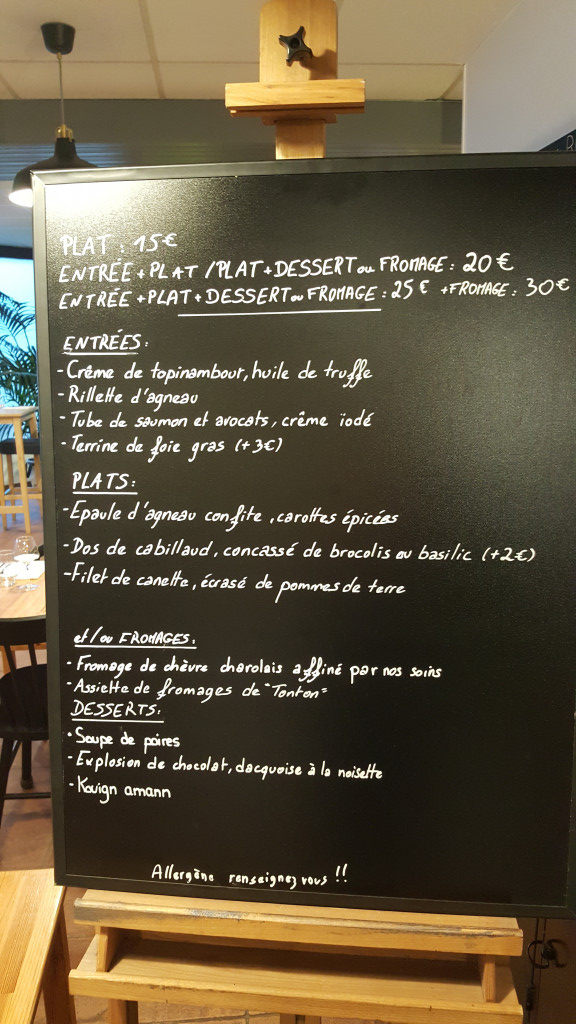 PLAT : 15€
ENTRÉE + PLAT / PLAT + DESSERT ou FROMAGE : 20€
ENTRÉE + PLAT + DESSERT ou FROMAGE : 25€ + FROMAGE : 30€
ENTRÉES :
- Crême de topinambour, huile de truffe
- Rillette d'agneau
- Tube de saumon et avocats, crême ïodé
- Terrine de foie gras (+3€)
PLATS :
- Epaule d'agneau confite, carottes épicées
- Dos de cabillaud, concassé de brocolis au basilic (+2€)
- Filet de canette, écrasé de pommes de terre
et/ou FROMAGES :
- Fromage de chèvre charolais affiné par nos soins
- Assiette de fromages de "Tonton"
DESSERTS :
- Soupe de poires
- Explosion de chocolat, dacquoise à la noisette
- Kouign amann
Allergène renseignez vous !!